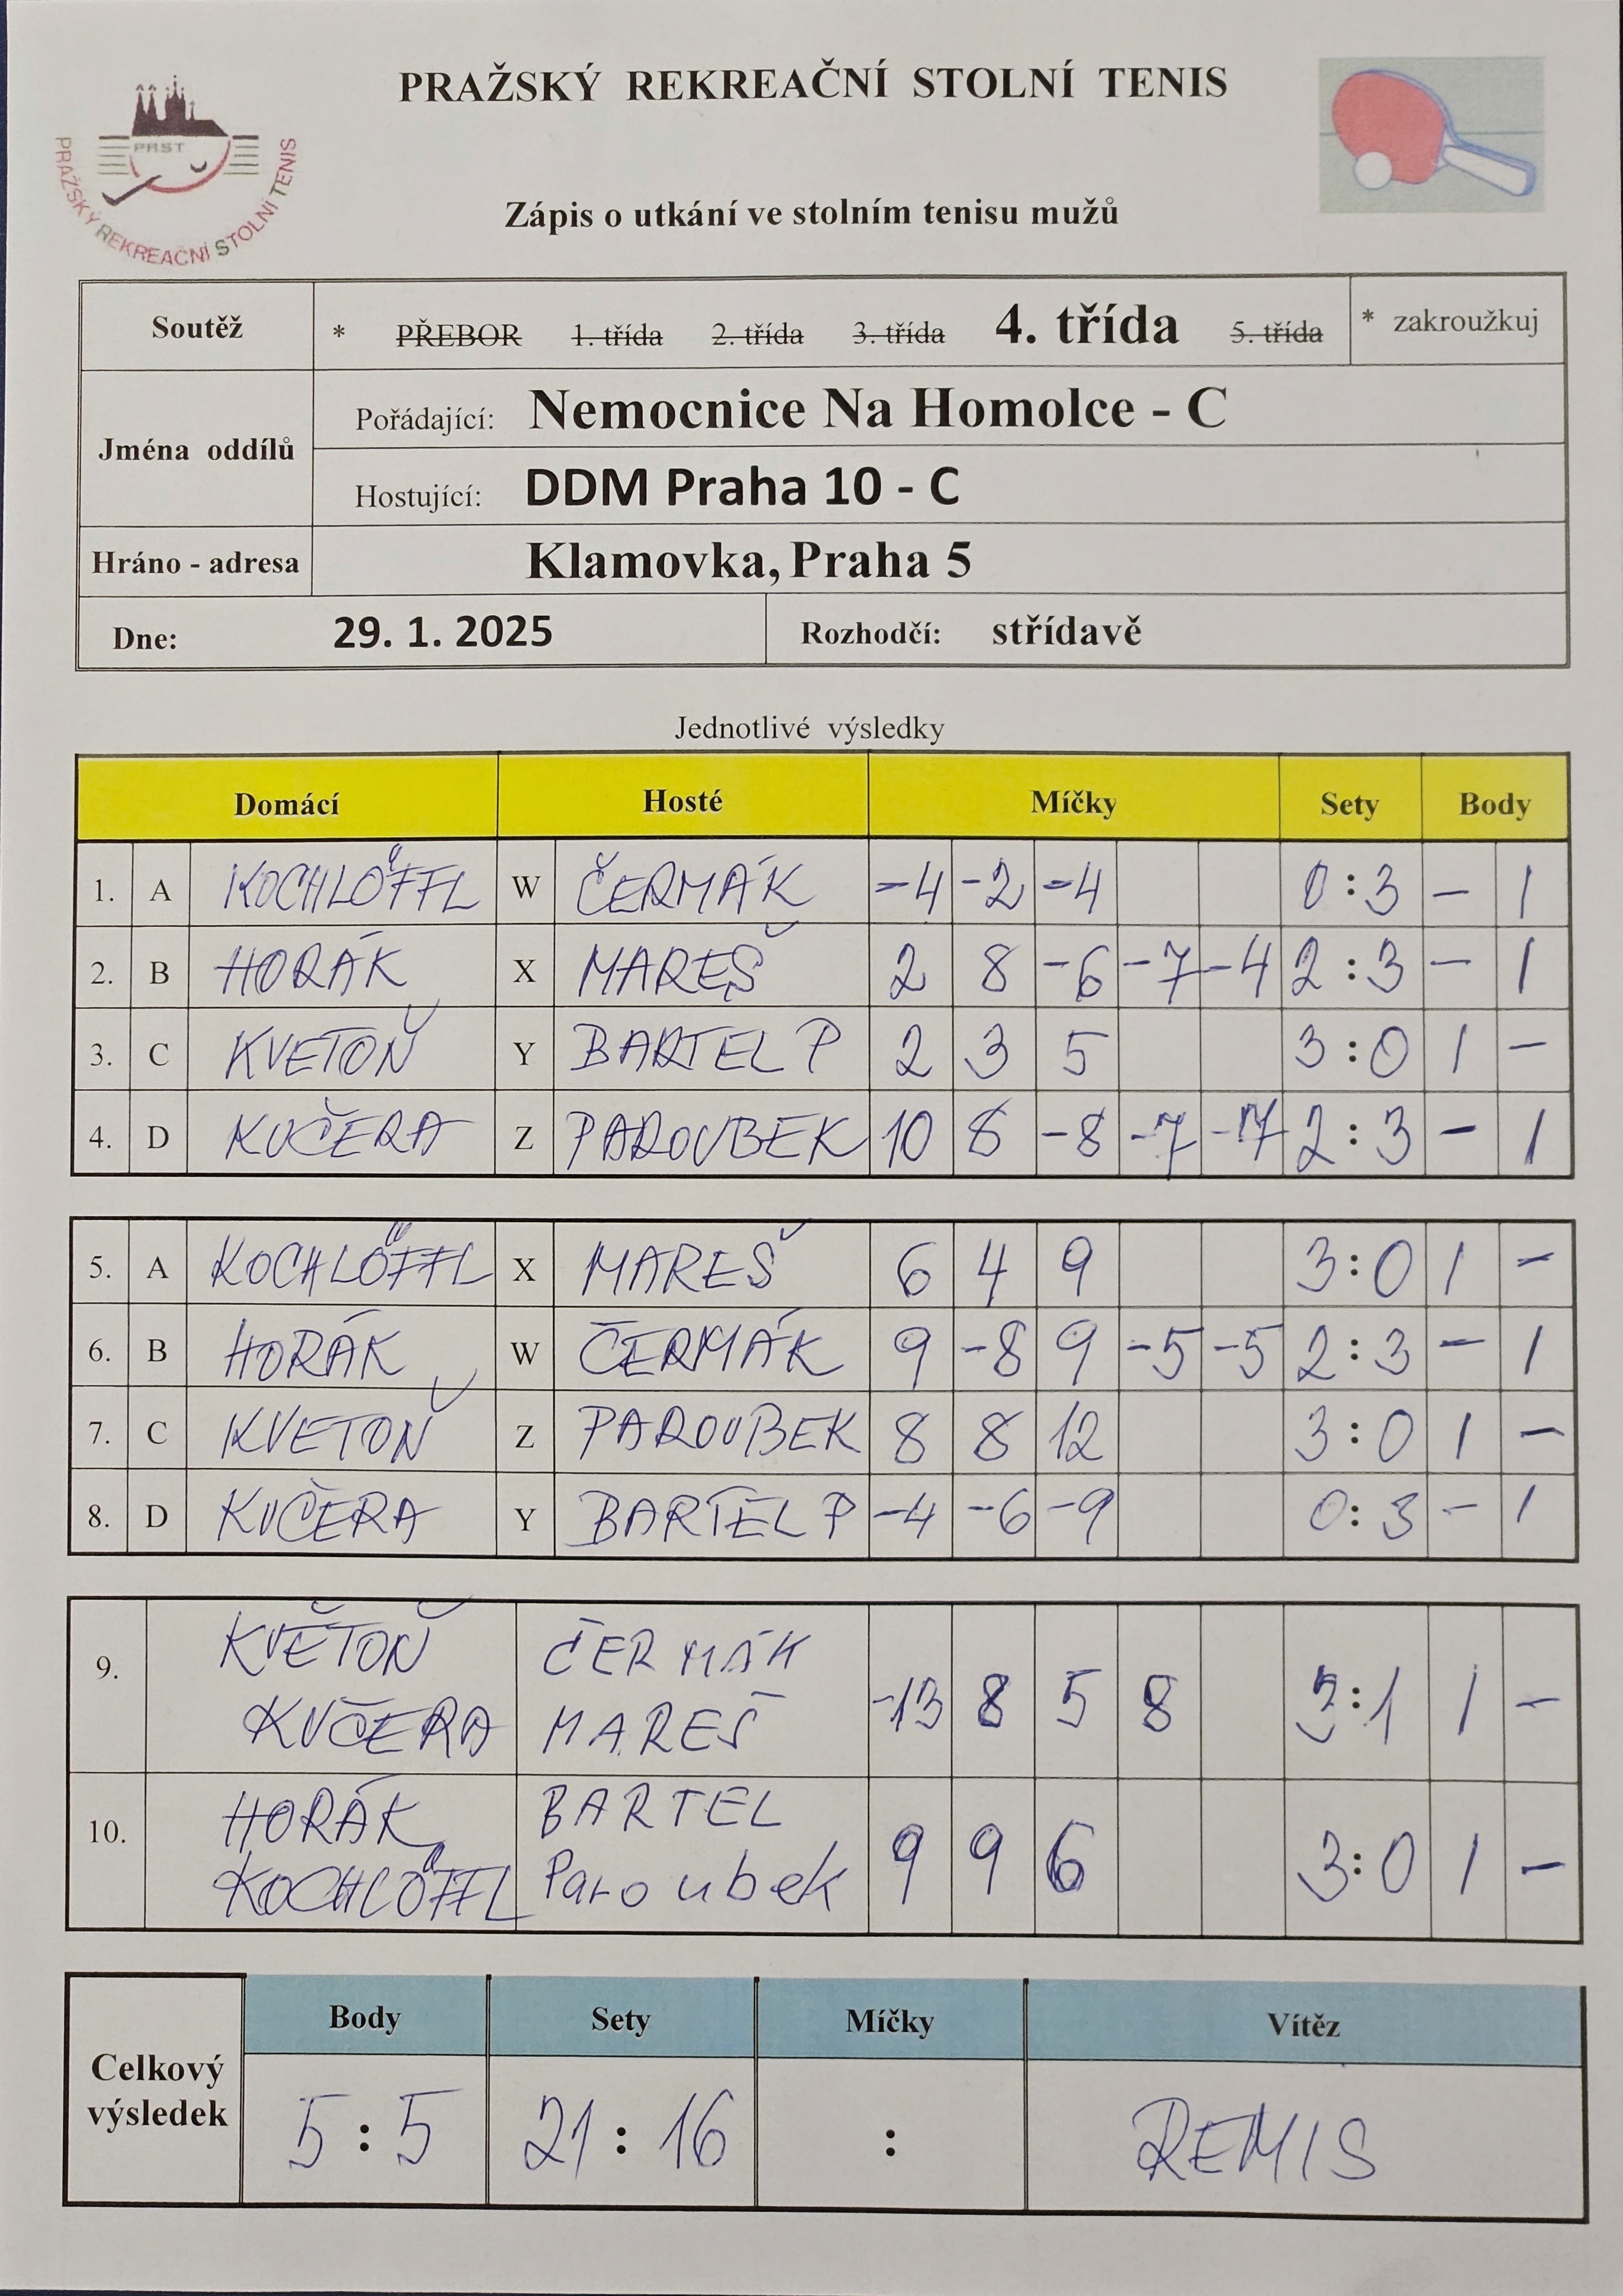 PRAŽSKÝ REKREAČNÍ STOLNÍ TENIS
PRST
PRAŽSKÝ REKREAČNÍ STOLNÍ TENIS
Zápis o utkání ve stolním tenisu mužů
Soutěž * PŘEBOR 1. třída 2. třída 3. třída 4. třída 5. třída * zakroužkuj
Jména oddílů
Pořádající: Nemocnice Na Homolce - C
Hostující: DDM Praha 10 - C
Hráno - adresa Klamovka, Praha 5
Dne: 29. 1. 2025 Rozhodčí: střídavě
Jednotlivé výsledky
Domácí Hosté Míčky Sety Body
1. A KOCHLÖFFL W ČERMÁK -4 -2 -4 0:3 - 1
2. B HORÁK X MAREŠ 2 8 -6 -7 -4 2:3 - 1
3. C KVETOŇ Y BARTEL P 2 3 5 3:0 1 -
4. D KUČERA Z PAROUBEK 10 8 -8 -7 2:3 - 1
5. A KOCHLÖFFL X MAREŠ 6 4 9 3:0 1 -
6. B HORÁK W ČERMÁK 9 -8 9 -5 -5 2:3 - 1
7. C KVETOŇ Z PAROUBEK 8 8 12 3:0 1 -
8. D KUČERA Y BARTEL P -4 -6 -9 0:3 - 1
9. KVĚTOŇ ČERMÁK
KUČERA MAREŠ -13 8 5 8 3:1 1 -
10. HORÁK BARTEL
KOCHLÖFFL Paroubek 9 9 6 3:0 1 -
Celkový výsledek
Body Sety Míčky Vítěz
5:5 21:16 : REMIS